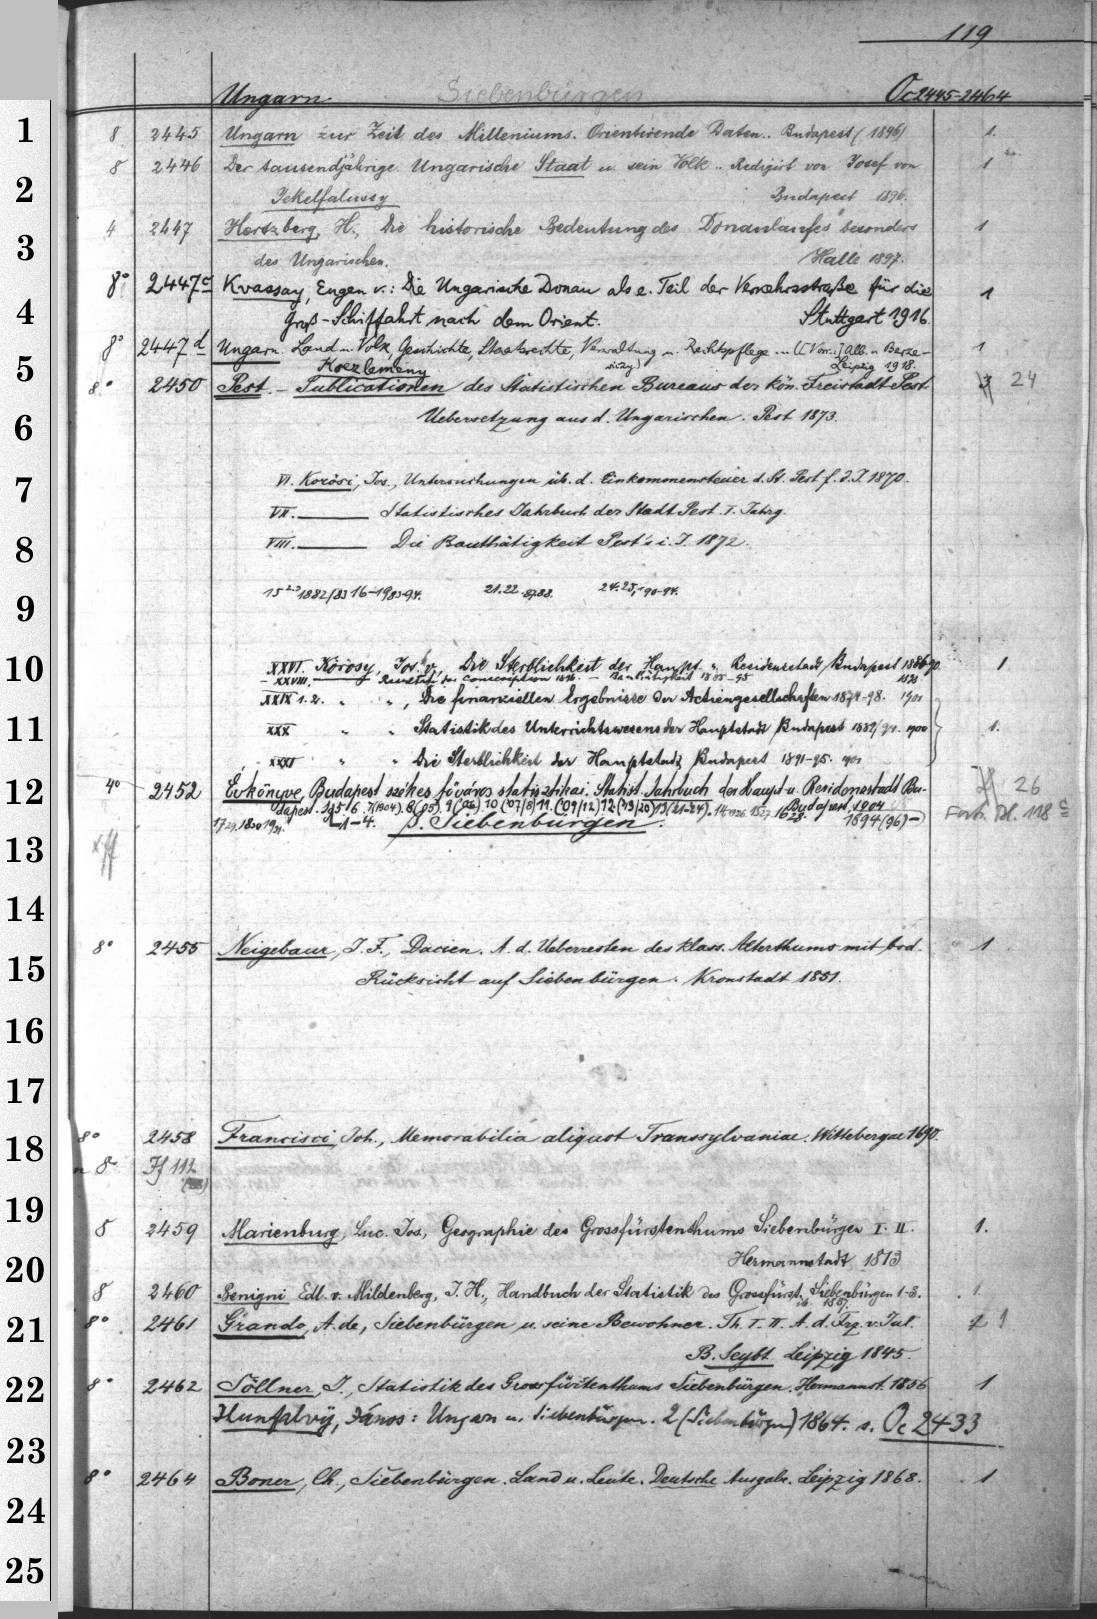 119
Ungarn Siebenbürgen Oc 2445-2464
1
8 2445 Ungarn zur Zeit des Milleniums. Orientirende Daten.. Budapest (1896) 1.
8 2446 Der tausendjährige Ungarische Staat u. sein Volk.. Redigirt von Josef von 1
2
Jekelfalussy Budapest 1896.
4 2447 Hertzberg, H., Die historische Bedeutung des Donaulaufes besonders 1
3
des Ungarischen. Halle 1897.
8° 2447c Kvassay, Eugen v.: Die Ungarische Donau als e. Teil der Verkehrsstraße für die 1
4
Groß-Schiffahrt nach dem Orient. Stuttgart 1916.
8° 2447d Ungarn. Land u. Volk, Geschichte, Staatsrechte, Verwaltung u. Rechtspflege ... ([Vorr.:] Alb. v. Berze- 1
5
viczy) Leipzig 1918.
Koezlemeny
8° 2450 Pest. - Publicationen des Statistischen Bureaus der kön. Freistadt Pest. 24
6
Uebersetzung aus d. Ungarischen. Pest 1873.
7
VI. Körösi, Jos., Untersuchungen üb. d. Einkommensteuer d. St. Pest f. d. J. 1870.
VII. Statistisches Jahrbuch der Stadt Pest. I. Jahrg.
8
VIII. Die Bauthätigkeit Pest's i. J. 1872.
9
15 1882/83 16-19 83-94. 21.22. 87.88. 24.25, 90-94.
10
XXVI. Körösy, Jos. v., Die Sterblichkeit der Haupt- u. Residenzstadt Budapest 1886-90. 1.
XXVIII. Resultate der Conscription 1896. - Bauthätigkeit 1885-95 1898.
XXIX 1.2. " " , Die finanziellen Ergebnisse der Actiengesellschaften 1874-98. 1901
11
XXX " " Statistik des Unterrichtswesens der Hauptstadt Budapest 1900 1.
XXXI " " Die Sterblichkeit der Hauptstadt Budapest 1891-95. 1901
12
4° 2452 Évkönyve, Budapest székes főváros statisztikai. Statist. Jahrbuch der Haupt- u. Residenzstadt Bu- 26
dapest. Jg 5. 6. 7(1904). 8(05). 9(06) 10 (07/8) 11. (09/12) 12 (13/20) 13 (21-24). Budapest 1904
1-4. s. Siebenbürgen. 1894(96)- Forts. Bl. 118c
13
14
8° 2455 Neigebaur, J. F., Dacien. A. d. Ueberresten des klass. Alterthums mit bes. 1
15
Rücksicht auf Siebenbürgen. Kronstadt 1851.
16
17
18
8° 2458 Francisci, Joh., Memorabilia aliquot Transsylvaniae. Wittebergae 1690.
in 8° Jf 112
19
8 2459 Marienburg, Luc. Jos., Geographie des Grossfürstenthums Siebenbürgen I. II. 1.
20
Hermannstadt 1813
8 2460 Benigni Edl. v. Mildenberg, J. H., Handbuch der Statistik des Grossfürst. Siebenbürgen 1-3. 1.
ib. 1837.
21
8° 2461 Grando, A. de, Siebenbürgen u. seine Bewohner. Th. I. II. A. d. Frz. v. Jul. 1
B. Seybt. Leipzig 1845.
22
8° 2462 Söllner, J., Statistik des Grossfürstenthums Siebenbürgen. Hermannst. 1856 1
Hunfalvy, János: Ungarn u. Siebenbürgen. 2 (Siebenbürgen) 1864. s. Oc 2433
23
8° 2464 Boner, Ch., Siebenbürgen. Land u. Leute. Deutsche Ausgabe. Leipzig 1868. 1
24
25